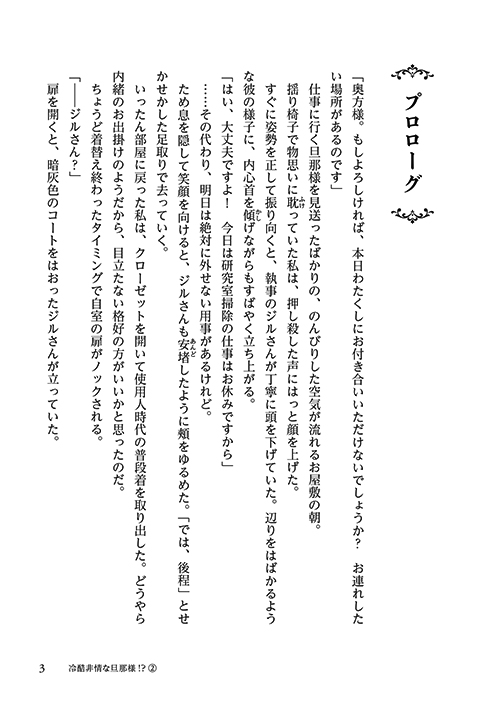 プロローグ
「奥方様。もしよろしければ、本日わたくしにお付き合いいただけないでしょうか？　お連れした
い場所があるのです」
　仕事に行く旦那様を見送ったばかりの、のんびりした空気が流れるお屋敷の朝。
　揺り椅子で物思いに耽っていた私は、押し殺した声にはっと顔を上げた。
　すぐに姿勢を正して振り向くと、執事のジルさんが丁寧に頭を下げていた。辺りをはばかるよう
な彼の様子に、内心首を傾げながらもすばやく立ち上がる。
「はい、大丈夫ですよ！　今日は研究室掃除の仕事はお休みですから」
　……その代わり、明日は絶対に外せない用事があるけれど。
　ため息を隠して笑顔を向けると、ジルさんも安堵したように頬をゆるめた。「では、後程」とせ
かせかした足取りで去っていく。
　いったん部屋に戻った私は、クローゼットを開いて使用人時代の普段着を取り出した。どうやら
内緒のお出掛けのようだから、目立たない格好の方がいいかと思ったのだ。
　ちょうど着替え終わったタイミングで自室の扉がノックされる。
「――ジルさん？」
　扉を開くと、暗灰色のコートをはおったジルさんが立っていた。
3　冷酷非情な旦那様!?②